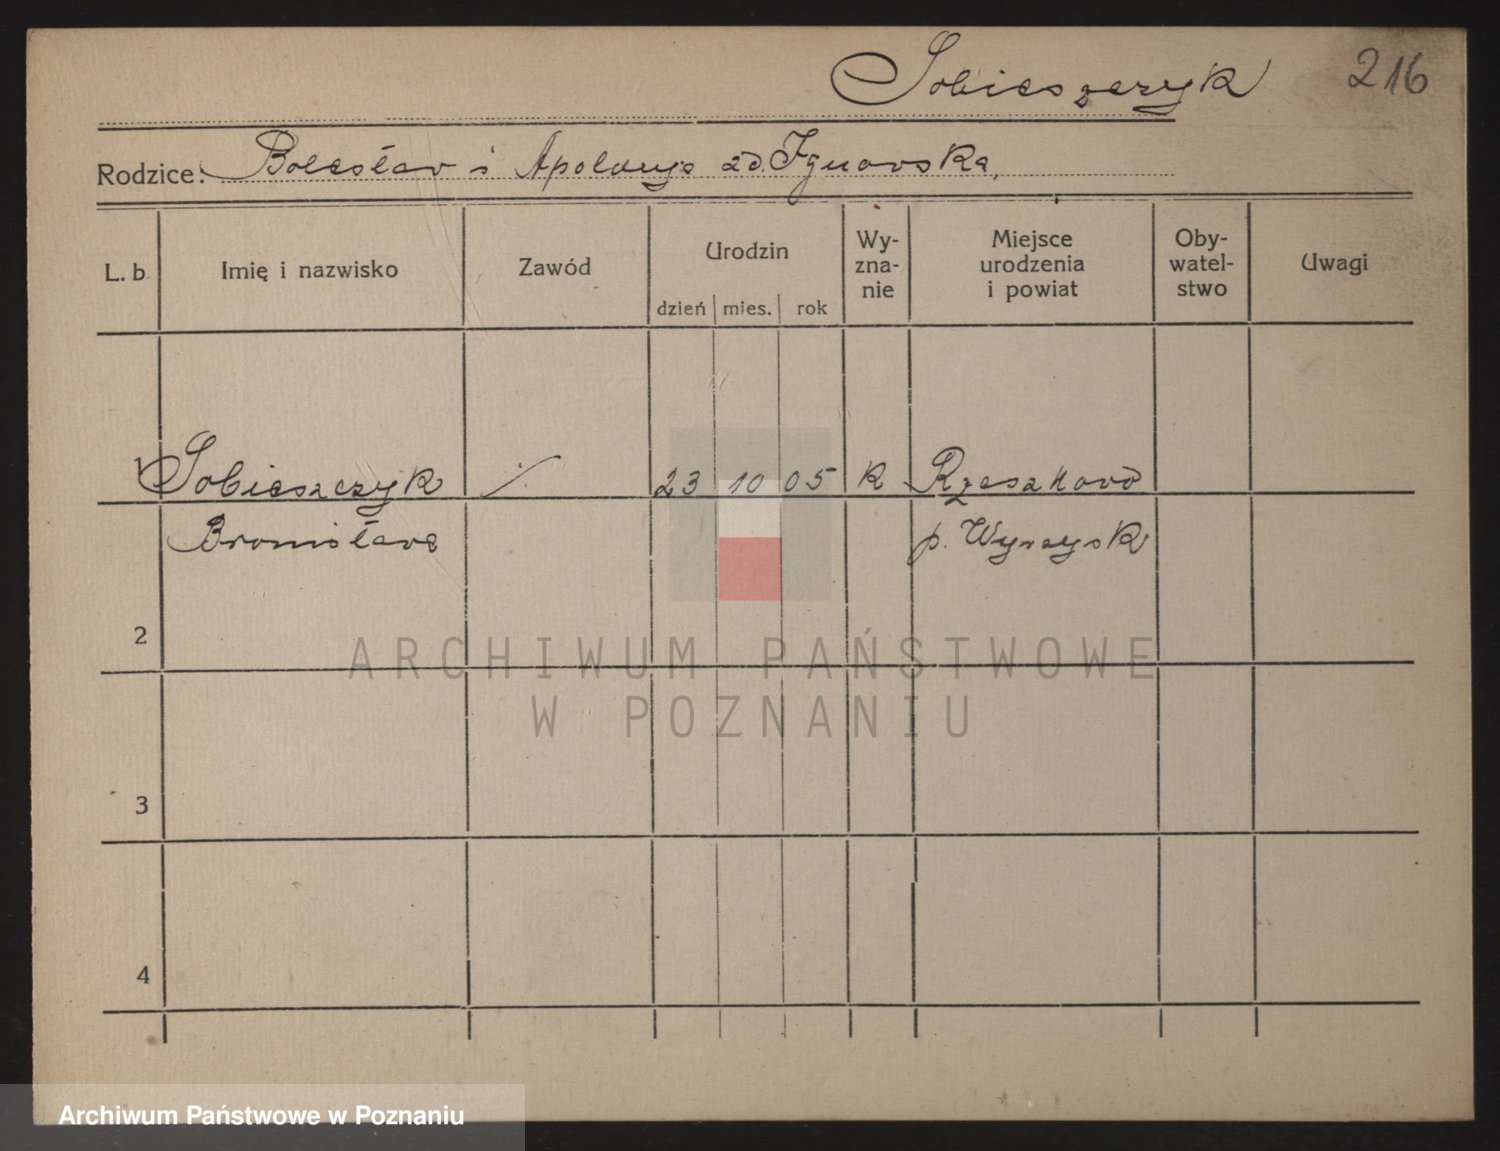 Sobieszczyk 216
Rodzice: Bolesław i Apolonja zd. Ignowska,
L. b. Imię i nazwisko Zawód Urodzin dzień mies. rok Wy-
zna-
nie Miejsce
urodzenia
i powiat Oby-
watel-
stwo Uwagi
1 Sobieszczyk ./. 23 10 05 K Rzeszkowo
Bronisława p. Wyrzysk
2
3
4
ARCHIWUM PAŃSTWOWE
W POZNANIU
Archiwum Państwowe w Poznaniu